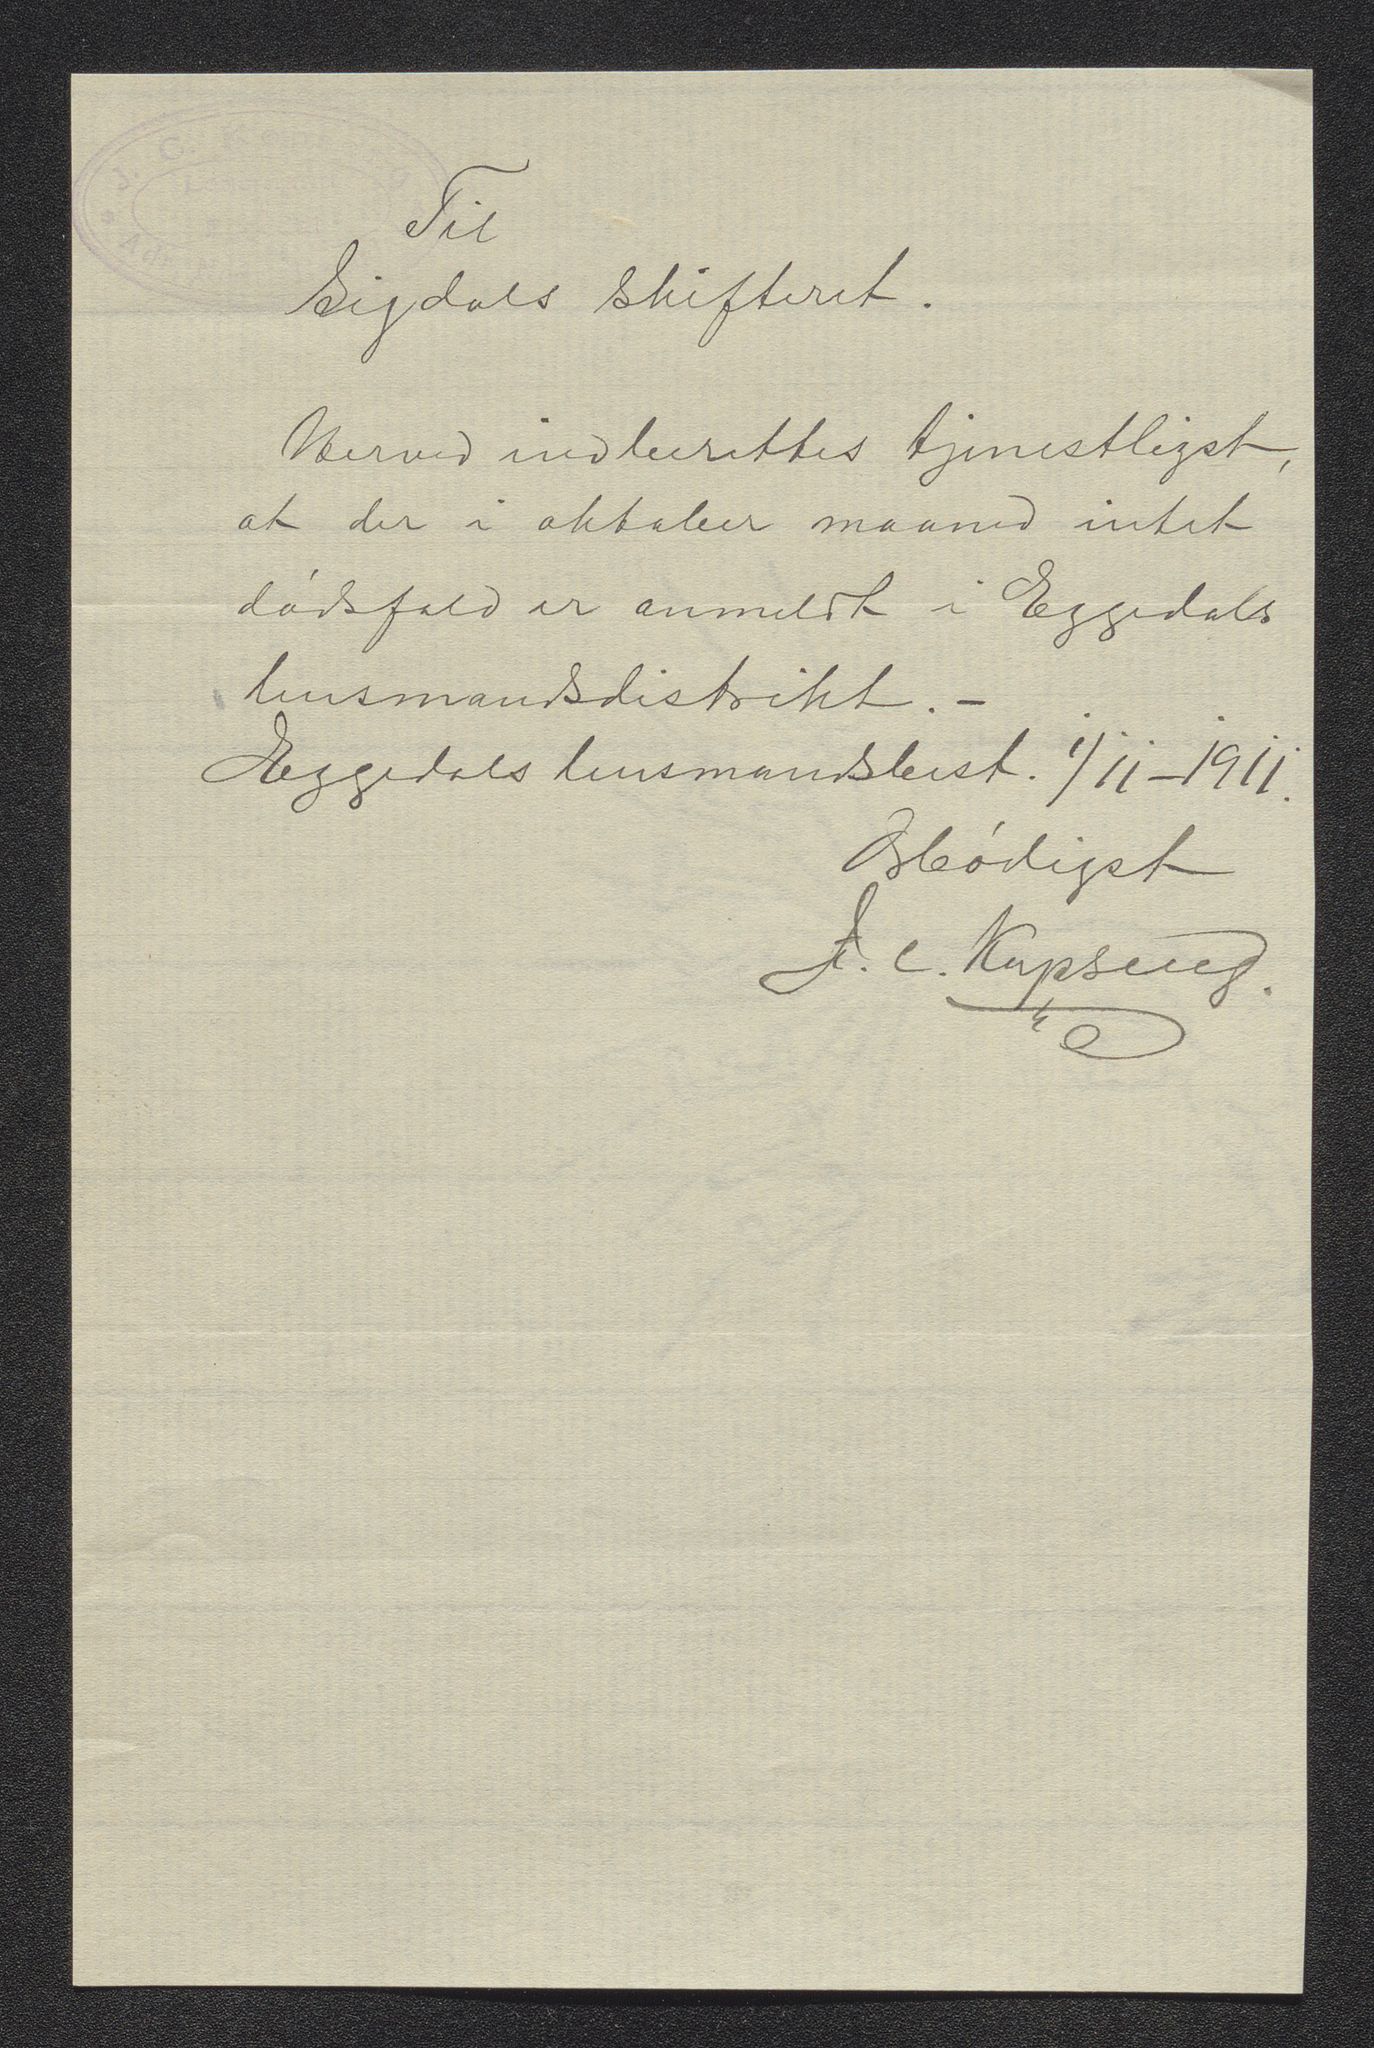 J. C.
Til
Sigdals skifteret.
Herved indberettes tjenestligst,
at der i oktober maaned intet
dødsfald er anmeldt i Eggedals
lensmandsdistrikt. –
Eggedals lensmandsbest. 1/11–1911.
Ærbødigst
J. C. Kopseng.